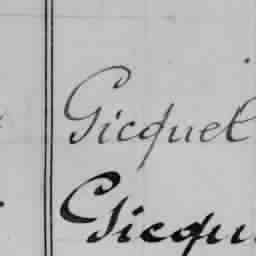 Gicquel
Gicqu